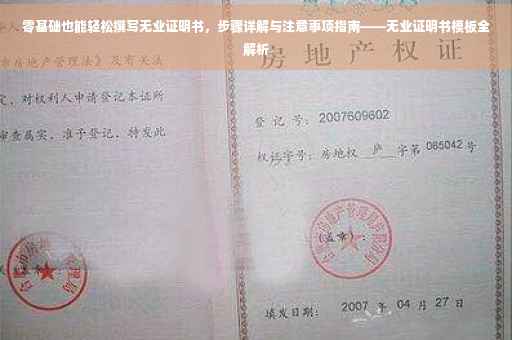 零基础也能轻松撰写无业证明书，步骤详解与注意事项指南——无业证明书模板全
解析
房地产权证
市房地产管理法》及有关法
定，对权利人申请登记本证所
审查属实，准予登记，特发此
登记号：2007609602
权证字号：房地权 庐 字第 085042 号
（盖章）：
填发日期： 2007 年 04 月 27 日